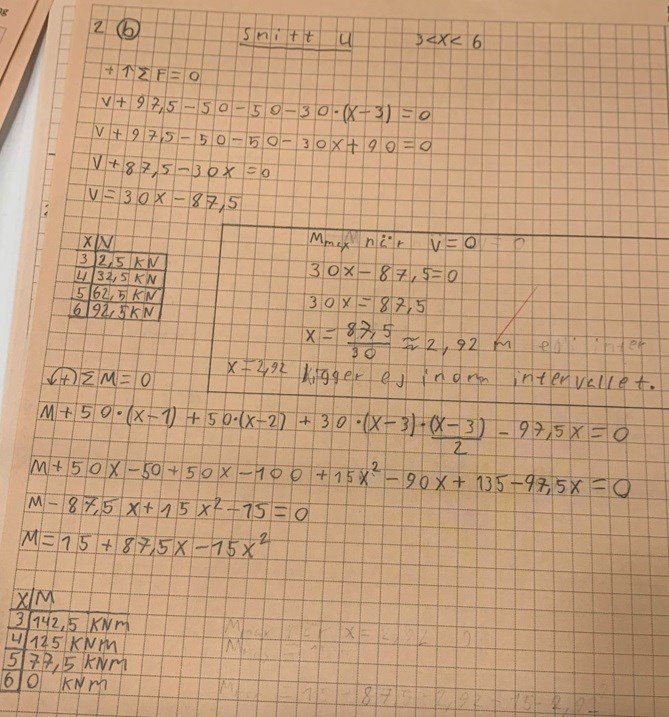 2 b Snitt 4 3<x<6
+↑ΣF=0
V+97,5-50-50-30·(x-3)=0
V+97,5-50-50-30x+90=0
V+87,5-30x=0
V=30x-87,5
x|V
3|2,5 KN
4|32,5 KN
5|62,5 KN
6|92,5KN
Mmax när V=0
30x-87,5=0
30x=87,5
x=87,5/30≈2,92 m
x=2,92 ligger ej inom intervallet.
↶+ΣM=0
M+50·(x-1)+50·(x-2)+30·(x-3)·(x-3)/2-97,5x=0
M+50x-50+50x-100+15x²-90x+135-97,5x=0
M-87,5x+15x²-15=0
M=15+87,5x-15x²
x|M
3|142,5 KNm
4|125 KNm
5|77,5 KNm
6|0 KNm